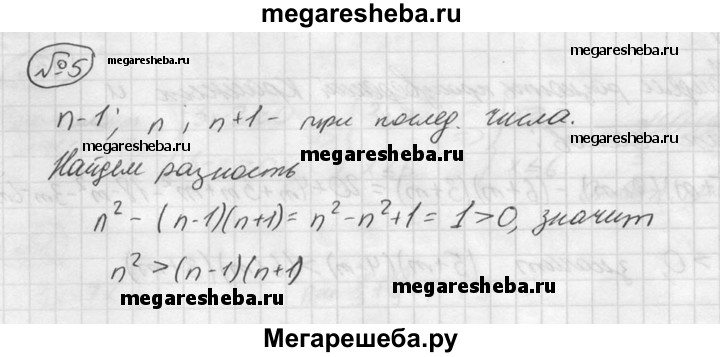 megaresheba.ru
№5
megaresheba.ru
megaresheba.ru
n-1; n; n+1 - три послед. числа.
Найдем разность
megaresheba.ru
megaresheba.ru
n² - (n-1)(n+1) = n² - n² + 1 = 1 > 0, значит
n² > (n-1)(n+1)
megaresheba.ru
megaresheba.ru
Мегарешеба.ру